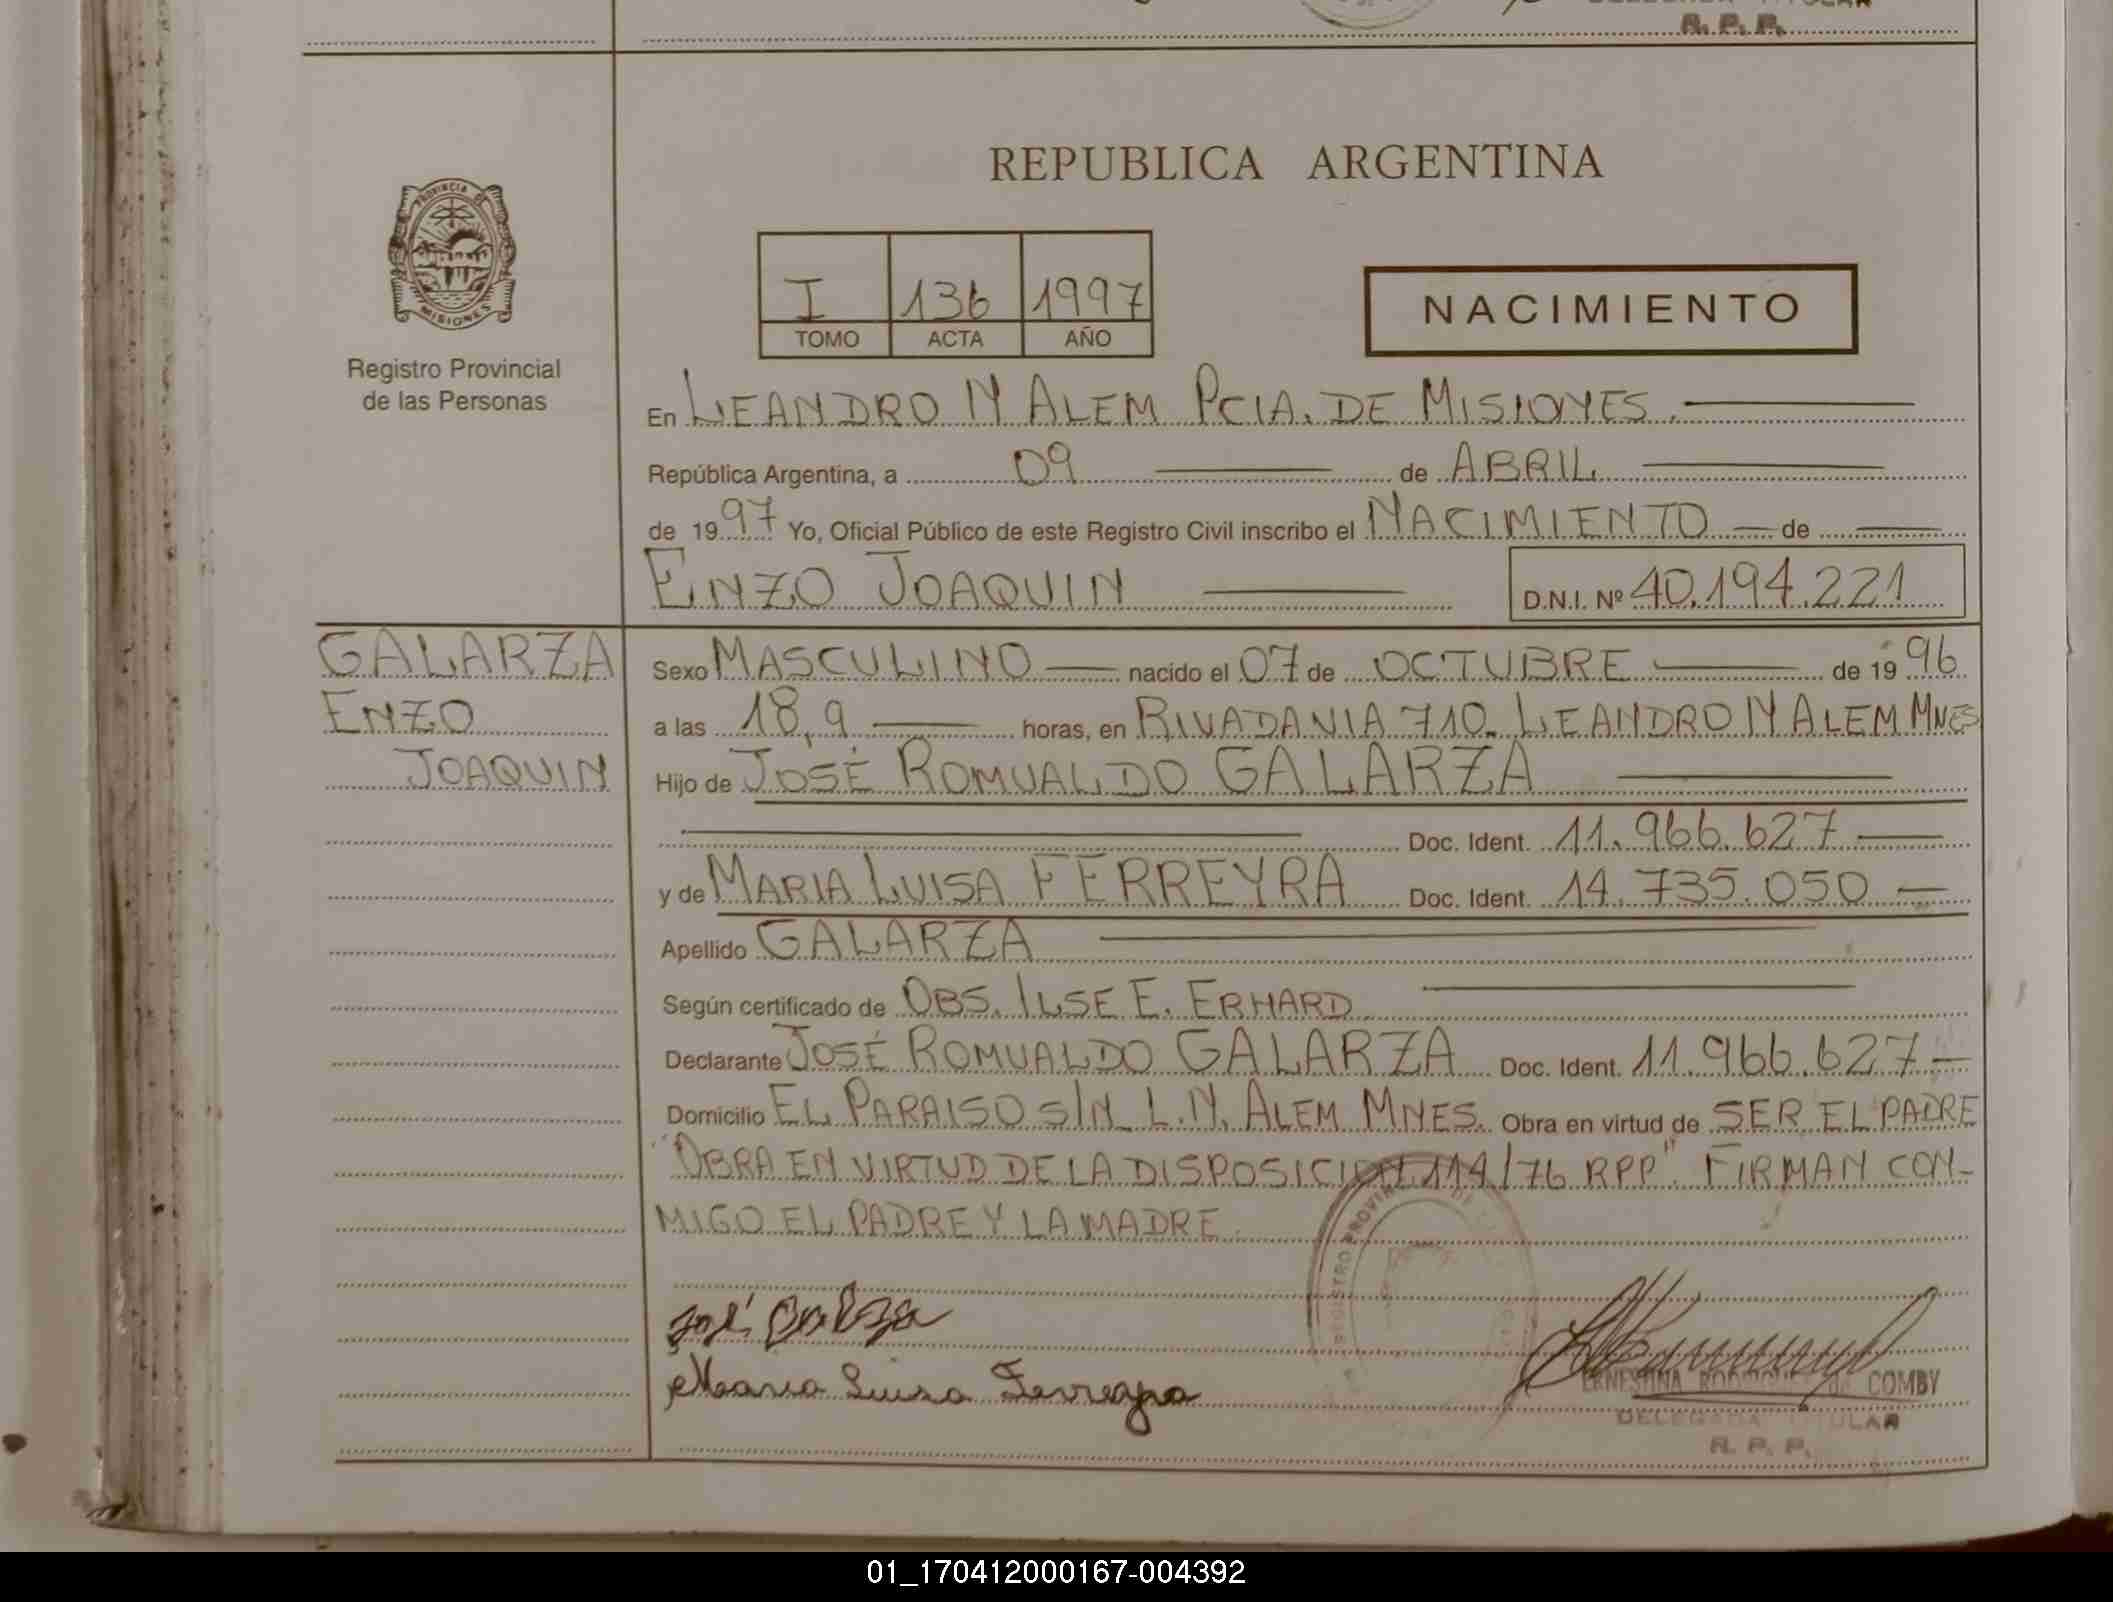 R. P. P.
PROVINCIA DE
MISIONES
Registro Provincial
de las Personas
REPUBLICA ARGENTINA
I 136 1997
TOMO ACTA AÑO
NACIMIENTO
En LEANDRO N ALEM PCIA. DE MISIONES.
República Argentina, a 09 de ABRIL
de 1997 Yo, Oficial Público de este Registro Civil inscribo el NACIMIENTO de
ENZO JOAQUIN D.N.I. Nº 40.194.221
GALARZA
ENZO
JOAQUIN
Sexo MASCULINO nacido el 07 de OCTUBRE de 1996
a las 18,9 horas, en RIVADAVIA 710. LEANDRO N ALEM MNES
Hijo de JOSÉ ROMUALDO GALARZA
Doc. Ident. 11.966.627
y de MARIA LUISA FERREYRA Doc. Ident. 14.735.050
Apellido GALARZA
Según certificado de OBS. ILSE E. ERHARD
Declarante JOSÉ ROMUALDO GALARZA Doc. Ident. 11.966.627
Domicilio EL PARAISO S/N L.N. ALEM MNES. Obra en virtud de SER EL PADRE
"OBRA EN VIRTUD DE LA DISPOSICION 114/76 RPP". FIRMAN CON-
MIGO EL PADRE Y LA MADRE.
REGISTRO PROVIN
José Galarza
Maria Luisa Ferreyra
ERNESTINA RODRIGUEZ de COMBY
DELEGADA TITULAR
R. P. P.
01_170412000167-004392